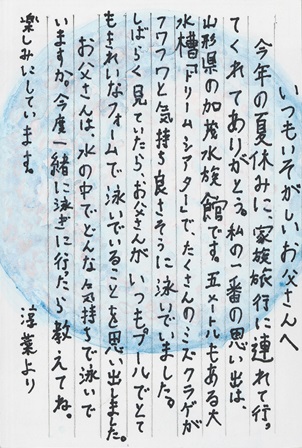 いつもいそがしいお父さんへ
今年の夏休みに、家族旅行に連れて行っ
てくれてありがとう。私の一番の思い出は、
山形県の加茂水族館です。五メールもある大
水槽「ドリームシアター」で、たくさんのミズクラゲが
フワフワと気持ち良さそうに泳いでいました。
しばらく見ていたら、お父さんが、いつもプールでとて
もきれいなフォームで泳いでいることを思い出しました。
お父さんは、水の中でどんな気持ちで泳いで
いますか。今度一緒に泳ぎに行たら教えてね。
楽しみにしています。
淳葉より